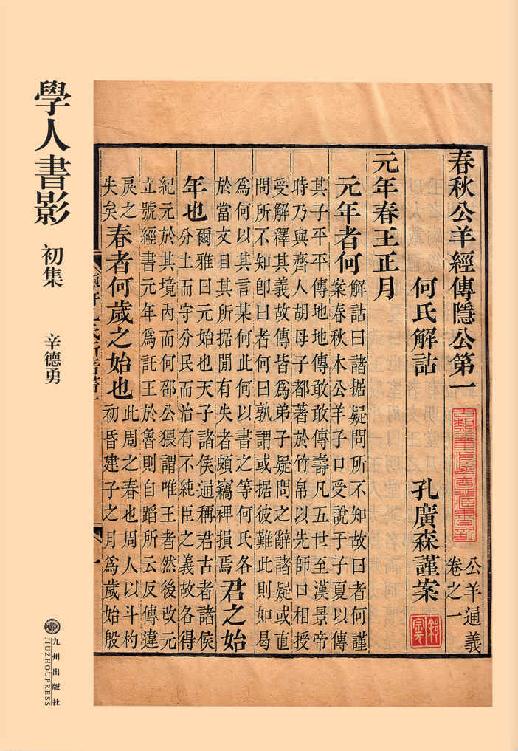 學人書影
初集
辛德勇
九州出版社
JIUZHOUPRESS
春秋公羊經傳隱公第一
公羊通義
卷之一
何氏解詁
孔廣森謹案
元年春王正月
元年者何
解詁曰諸据疑問所不知故曰者何謹
案春秋本公羊子口受說于子夏以傳
其子平平傳地地傳敢敢傳壽凡五世至漢景帝
時乃與齊人胡母子都著於竹帛以先師口相授
受解釋其義故傳皆爲弟子疑問之辭諸疑或直
問所不知卽曰者何曰孰謂或据彼難此則如曷
爲何以其言某何此何以書之等何氏各
於當文目其所据閒有失者頗竊裨損焉
君之始
年也
爾雅曰元始也天子諸侯通稱君古者諸侯
分土而守分民而治有不純臣之義故各得
紀元於其境內而何邵公猥謂唯王者然後改元
立號經書元年爲託王於魯則自蹈所云反傳違
戾之
失矣
春者何歲之始也
此周之春也周人以斗杓
初昏建子之月爲歲始殷